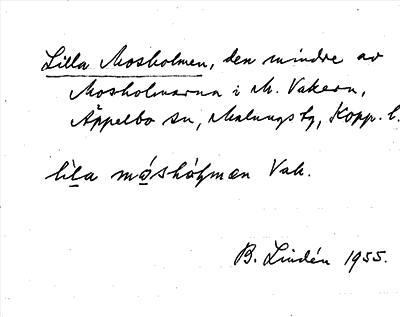 Lilla Mosholmen, den mindre av
Mosholmarna i M. Vakern,
Äppelbo sn, Malungs tg, Kopp. l.
lìla móshóɫmæn Vak.
B. Lindén 1955.